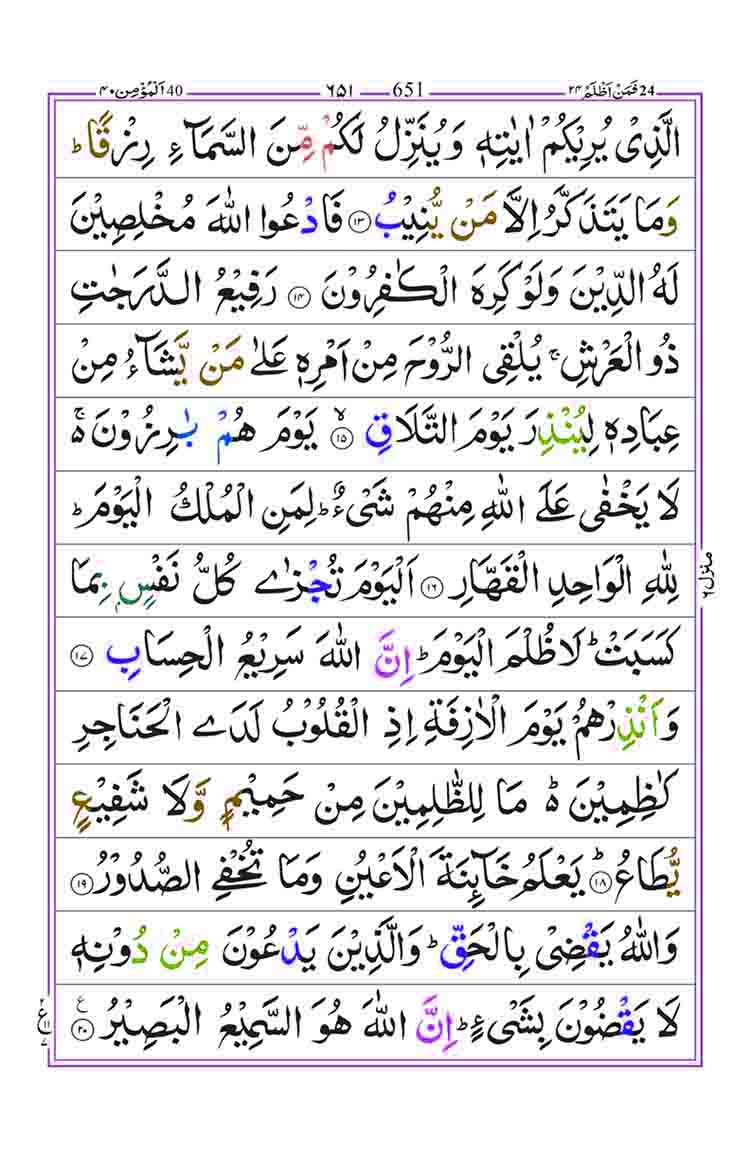 24 فَمَنْ اَظْلَمُ ٢٤ 651 ٦٥١ 40 اَلْمُؤْمِن ٤٠
الَّذِیْ یُرِیْكُمْ اٰیٰتِهٖ وَ یُنَزِّلُ لَكُمْ مِّنَ السَّمَآءِ رِزْقًا ؕ
وَ مَا یَتَذَكَّرُ اِلَّا مَنْ یُّنِیْبُ ۝۱۳ فَادْعُوا اللّٰهَ مُخْلِصِیْنَ
لَهُ الدِّیْنَ وَ لَوْ كَرِهَ الْكٰفِرُوْنَ ۝۱۴ رَفِیْعُ الدَّرَجٰتِ
ذُو الْعَرْشِ ۚ یُلْقِی الرُّوْحَ مِنْ اَمْرِهٖ عَلٰی مَنْ یَّشَآءُ مِنْ
عِبَادِهٖ لِیُنْذِرَ یَوْمَ التَّلَاقِ ۝۱۵ۙ یَوْمَ هُمْ بٰرِزُوْنَ ۬ۚ
لَا یَخْفٰی عَلَی اللّٰهِ مِنْهُمْ شَیْءٌ ؕ لِمَنِ الْمُلْكُ الْیَوْمَ ؕ
لِلّٰهِ الْوَاحِدِ الْقَهَّارِ ۝۱۶ اَلْیَوْمَ تُجْزٰی كُلُّ نَفْسٍۭ بِمَا
كَسَبَتْ ؕ لَا ظُلْمَ الْیَوْمَ ؕ اِنَّ اللّٰهَ سَرِیْعُ الْحِسَابِ ۝۱۷
وَ اَنْذِرْهُمْ یَوْمَ الْاٰزِفَةِ اِذِ الْقُلُوْبُ لَدَی الْحَنَاجِرِ
كٰظِمِیْنَ ؕ۬ مَا لِلظّٰلِمِیْنَ مِنْ حَمِیْمٍ وَّ لَا شَفِیْعٍ
یُّطَاعُ ۝۱۸ؕ یَعْلَمُ خَآىِٕنَةَ الْاَعْیُنِ وَ مَا تُخْفِی الصُّدُوْرُ ۝۱۹
وَ اللّٰهُ یَقْضِیْ بِالْحَقِّ ؕ وَ الَّذِیْنَ یَدْعُوْنَ مِنْ دُوْنِهٖ
لَا یَقْضُوْنَ بِشَیْءٍ ؕ اِنَّ اللّٰهَ هُوَ السَّمِیْعُ الْبَصِیْرُ ۝۲۰ ع
منزل ٦